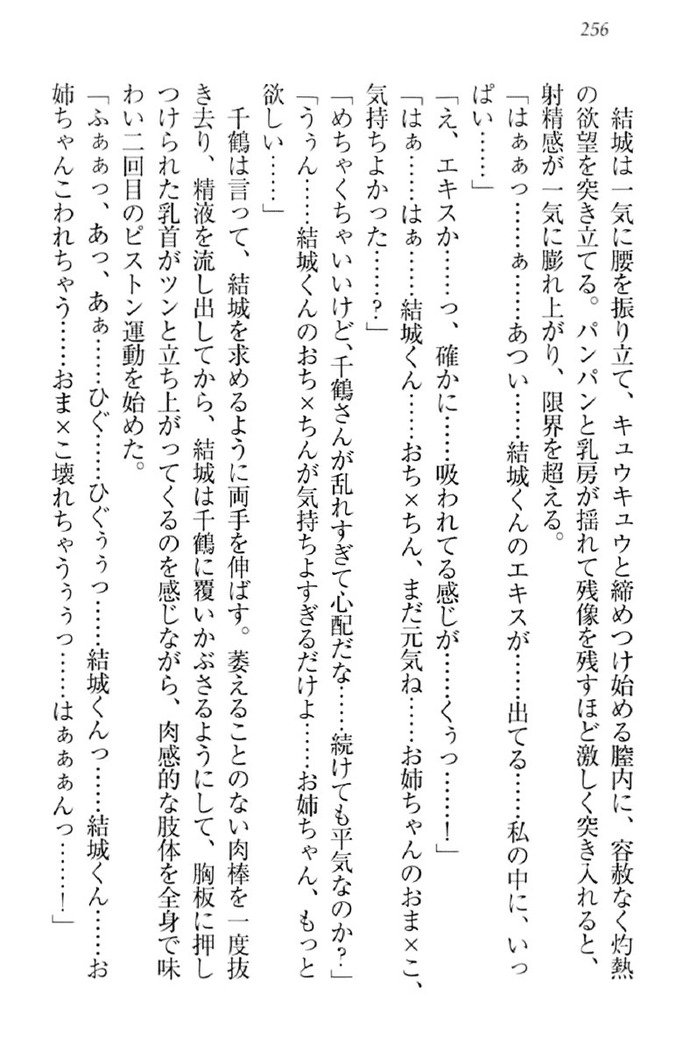 256
結城は一気に腰を振り立て、キュウキュウと締めつけ始める膣内に、容赦なく灼熱
の欲望を突き立てる。パンパンと乳房が揺れて残像を残すほど激しく突き入れると、
射精感が一気に膨れ上がり、限界を超える。
「はぁぁっ……ぁ……あつい……結城くんのエキスが……出てる……私の中に、いっ
ぱい……」
「え、エキスか……っ、確かに……吸われてる感じが……くぅっ……！」
「はぁ……はぁ……結城くん……おち×ちん、まだ元気ね……お姉ちゃんのおま×こ、
気持ちよかった……？」
「めちゃくちゃいいけど、千鶴さんが乱れすぎて心配だな……続けても平気なのか？」
「うぅん……結城くんのおち×ちんが気持ちよすぎるだけよ……お姉ちゃん、もっと
欲しい……」
千鶴は言って、結城を求めるように両手を伸ばす。萎えることのない肉棒を一度抜
き去り、精液を流し出してから、結城は千鶴に覆いかぶさるようにして、胸板に押し
つけられた乳首がツンと立ち上がってくるのを感じながら、肉感的な肢体を全身で味
わい二回目のピストン運動を始めた。
「ふぁぁっ、あっ、あぁ……ひぐ……ひぐぅぅっ……結城くんっ……結城くん……お
姉ちゃんこわれちゃう……おま×こ壊れちゃうぅぅっ……はぁぁぁんっ……！」